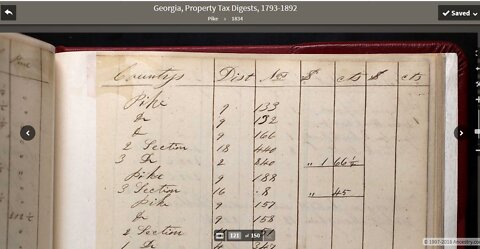 Georgia, Property Tax Digests, 1793-1892
Pike > 1834
Saved
Countys Dist Nos $ cts $ cts
Pike 9 133
Do 9 132
Do 9 166
2 Section 18 440
3 Do 2 240 " 1 66½
Pike 9 188
3 Section 16 8 " 45
Pike 9 157
Do 9 158
2 Section
1 Do 4
121 of 150
© 1997-2018 Ancestry.co